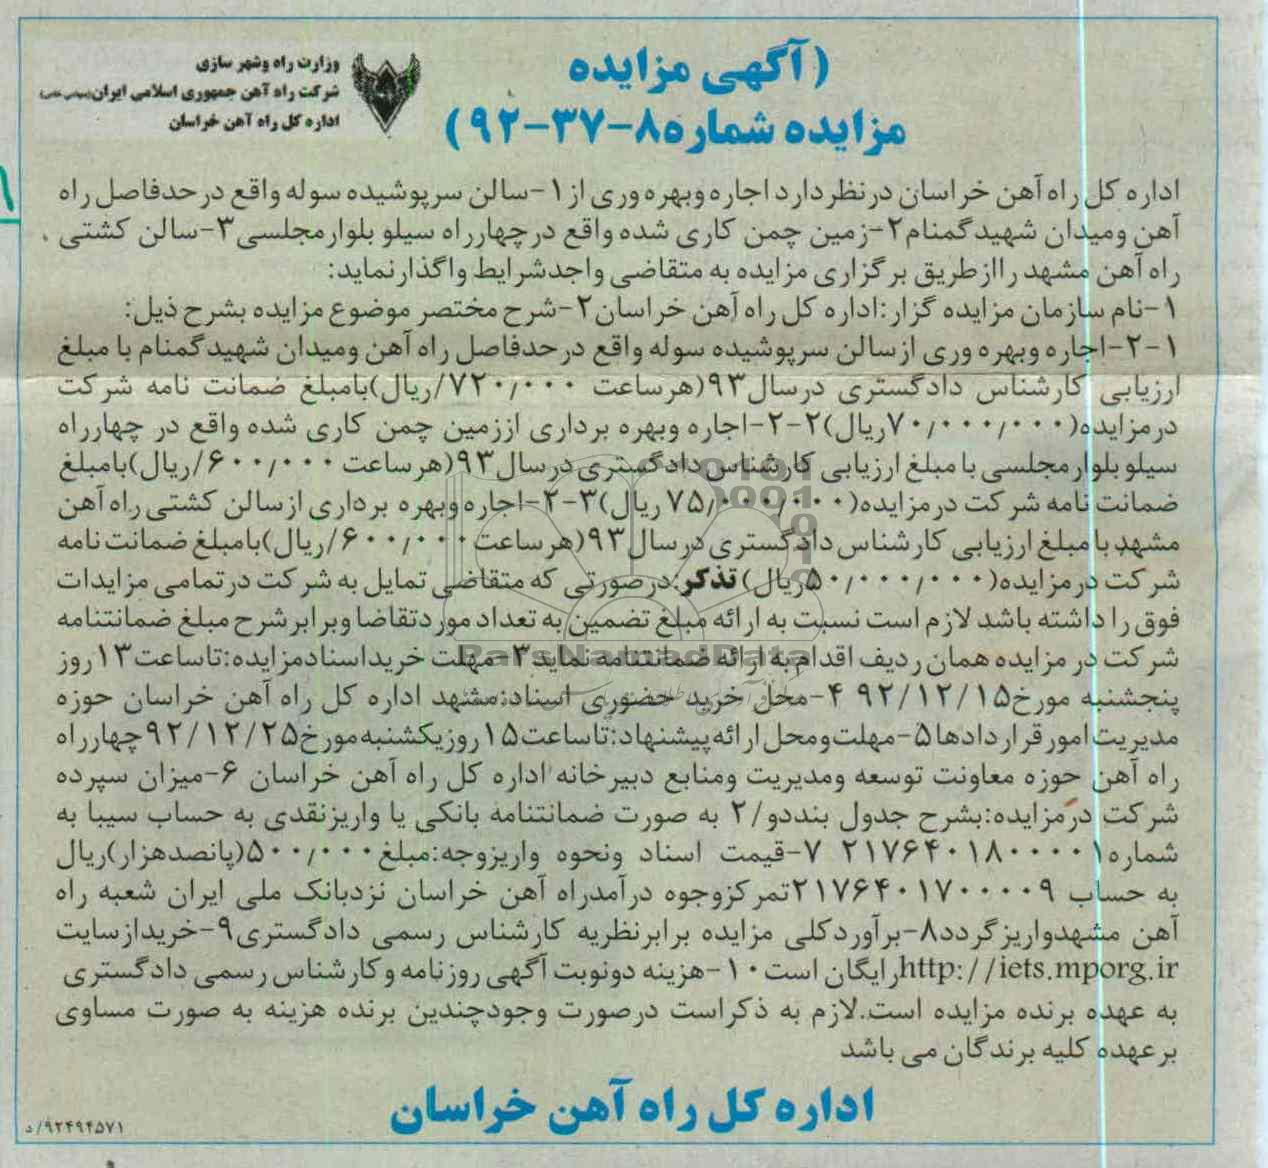 وزارت راه وشهر سازی
شرکت راه آهن جمهوری اسلامی ایران(سهامی خاص)
اداره کل راه آهن خراسان
(آگهی مزایده
مزایده شماره۸-۳۷-۹۲)
اداره کل راه آهن خراسان درنظردارد اجاره وبهره وری از۱-سالن سرپوشیده سوله واقع درحدفاصل راه
آهن ومیدان شهیدگمنام۲-زمین چمن کاری شده واقع درچهارراه سیلو بلوارمجلسی۳-سالن کشتی
راه آهن مشهد رااز طریق برگزاری مزایده به متقاضی واجدشرایط واگذارنماید:
۱-نام سازمان مزایده گزار:اداره کل راه آهن خراسان۲-شرح مختصر موضوع مزایده بشرح ذیل:
۲-۱-اجاره وبهره وری ازسالن سرپوشیده سوله واقع درحدفاصل راه آهن ومیدان شهیدگمنام با مبلغ
ارزیابی کارشناس دادگستری درسال۹۳(هرساعت ۷۲۰/۰۰۰/ریال)بامبلغ ضمانت نامه شرکت
درمزایده(۷۰/۰۰۰/۰۰۰ریال)۲-۲-اجاره وبهره برداری اززمین چمن کاری شده واقع در چهارراه
سیلو بلوار مجلسی با مبلغ ارزیابی کارشناس دادگستری درسال۹۳(هرساعت ۶۰۰/۰۰۰/ریال)بامبلغ
ضمانت نامه شرکت درمزایده(۷۵/۰۰۰/۰۰۰ ریال)۲-۳-اجاره وبهره برداری ازسالن کشتی راه آهن
مشهد با مبلغ ارزیابی کارشناس دادگستری درسال۹۳(هرساعت۶۰۰/۰۰۰/ریال)بامبلغ ضمانت نامه
شرکت درمزایده(۵۰/۰۰۰/۰۰۰ریال) تذکر:درصورتی که متقاضی تمایل به شرکت درتمامی مزایدات
فوق را داشته باشد لازم است نسبت به ارائه مبلغ تضمین به تعداد موردتقاضا وبرابرشرح مبلغ ضمانتنامه
شرکت در مزایده همان ردیف اقدام به ارائه ضمانتنامه نماید۳-مهلت خریداسنادمزایده:تاساعت۱۳روز
پنجشنبه مورخ۹۲/۱۲/۱۵ ۴-محل خرید حضوری اسناد:مشهد اداره کل راه آهن خراسان حوزه
مدیریت امورقراردادها۵-مهلت ومحل ارائه پیشنهاد:تاساعت۱۵روزیکشنبه مورخ۹۲/۱۲/۲۵چهارراه
راه آهن حوزه معاونت توسعه ومدیریت ومنابع دبیرخانه اداره کل راه آهن خراسان ۶-میزان سپرده
شرکت درمزایده:بشرح جدول بنددو/۲ به صورت ضمانتنامه بانکی یا واریزنقدی به حساب سیبا به
شماره۲۱۷۶۴۰۱۸۰۰۰۰۱ ۷-قیمت اسناد ونحوه واریزوجه:مبلغ۵۰۰/۰۰۰(پانصدهزار)ریال
به حساب ۲۱۷۶۴۰۱۷۰۰۰۰۹تمرکزوجوه درآمدراه آهن خراسان نزدبانک ملی ایران شعبه راه
آهن مشهدواریزگردد۸-برآوردکلی مزایده برابرنظریه کارشناس رسمی دادگستری۹-خریدازسایت
http://iets.mporg.irرایگان است۱۰-هزینه دونوبت آگهی روزنامه وکارشناس رسمی دادگستری
به عهده برنده مزایده است.لازم به ذکراست درصورت وجودچندین برنده هزینه به صورت مساوی
برعهده کلیه برندگان می باشد
اداره کل راه آهن خراسان
۹۲۴۹۴۵۷۱/د
ParsNamadData